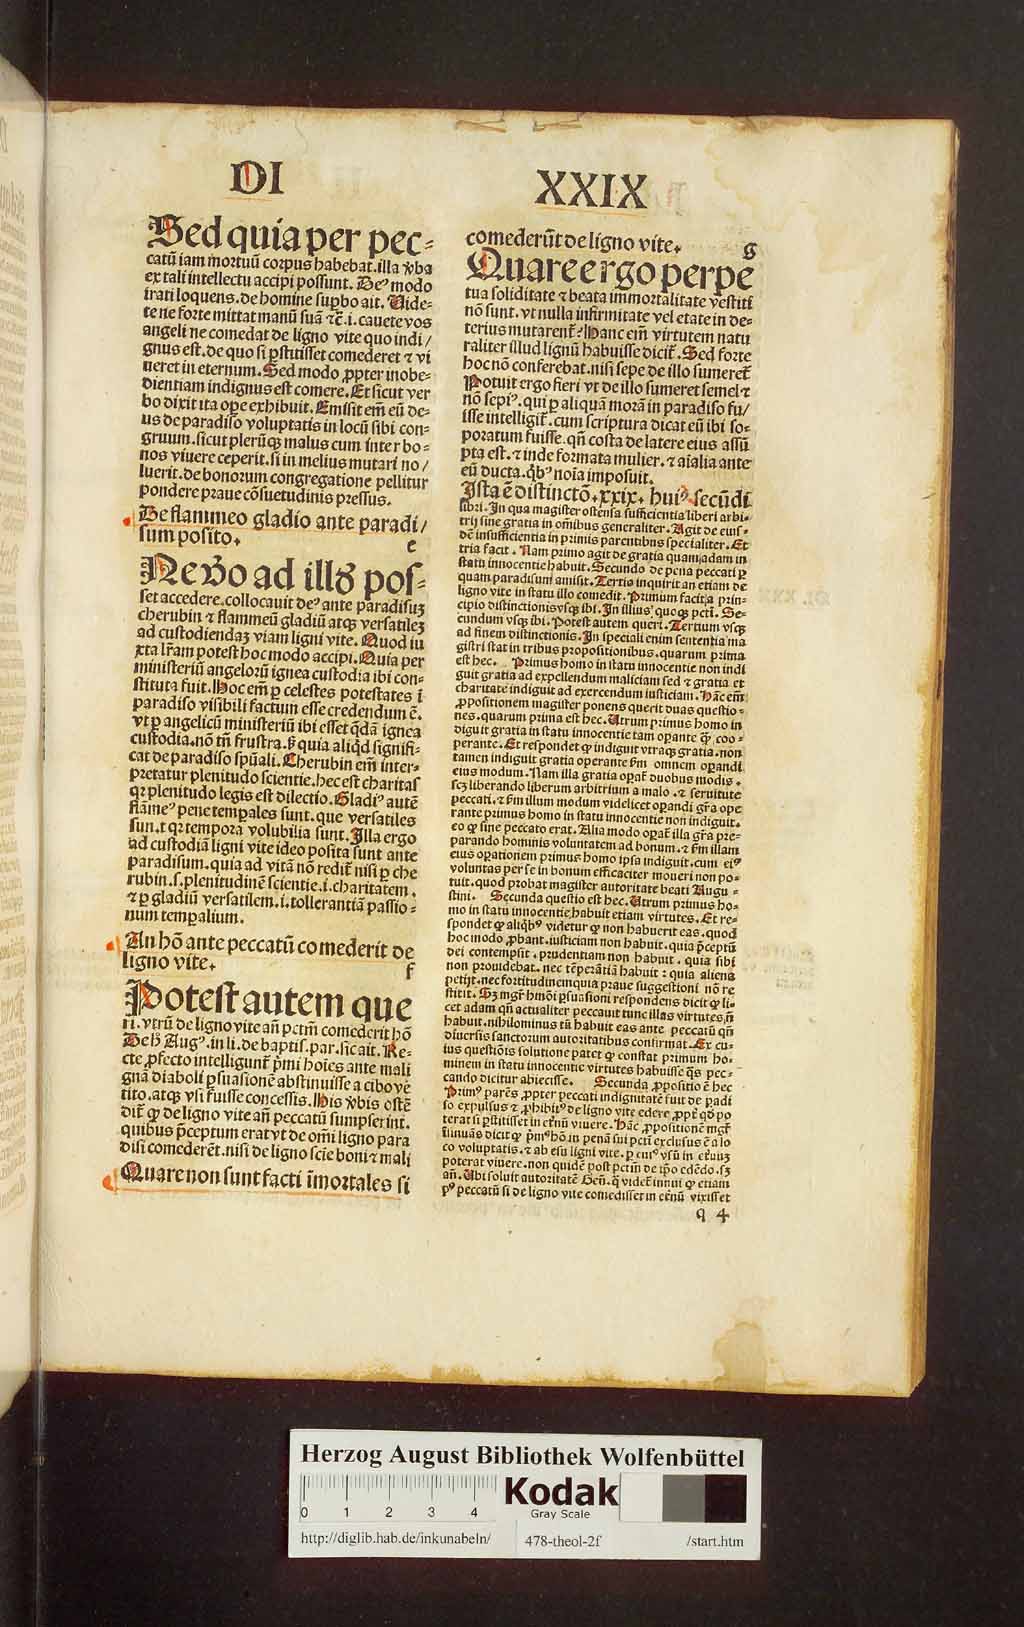 DI XXIX
Sed quia per pec⸗
catū iam mortuū corpus habebat. illa v̄ba
ex tali intellectu accipi possunt. Deꝰ modo
irati loquens. de homine suꝑbo ait. Uide⸗
te ne forte mittat manū suā ⁊c̄. i. cauete vos
angeli ne comedat de ligno vite quo indi/
gnus est. de quo si ꝑstitisset comederet ⁊ vi
ueret in eternum. Sed modo ꝓpter inobe⸗
dientiam indignus est comere. Et sicut ver
bo dixit ita oꝑe exhibuit. Emisit em̄ eū de⸗
us de paradiso voluptatis in locū sibi con⸗
gruum. sicut plerūqꝫ malus cum inter bo⸗
nos viuere ceperit. si in melius mutari no/
luerit. de bonorum congregatione pellitur
pondere praue cōsuetudinis pressus.
De flammeo gladio ante paradi/
sum posito. e
Ne v̄o ad illđ pos⸗
set accedere. collocauit deꝰ ante paradisuꝫ
cherubin ⁊ flammeū gladiū atqꝫ versatileꝫ
ad custodiendaꝫ viam ligni vite. Quod iu
xta lr̄am potest hoc modo accipi. Quia per
ministeriū angelorū ignea custodia ibi con⸗
stituta fuit. Hoc em̄ ꝑ celestes potestates ī
paradiso visibili factum esse credendum ē.
vt ꝑ angelicū ministeriū ibi esset q̄dā ignea
custodia. nō tn̄ frustra. sꝫ quia aliqd signifi⸗
cat de paradiso spūali. Cherubin em̄ inter⸗
pretatur plenitudo scientie. hec est charitas
qꝛ plenitudo legis est dilectio. Gladiꝰ autē
flāmeꝰ pene temꝑales sunt. que versatiles
sunt qꝛ tempora volubilia sunt. Illa ergo
ad custodiā ligni vite ideo posita sunt ante
paradisum. quia ad vitā nō redit̄ nisi ꝑ che
rubin. s. plenitudinē scientie. i. charitatem.
⁊ ꝑ gladiū versatilem. i. tollerantiā passio⸗
num temꝑalium.
An hō ante peccatū comederit de
ligno vite. f
Potest autem que
ri. vtrū de ligno vite añ pctm̄ comederit hō
De hꝰ Augꝰ. in li. de baptis. par. sic ait. Re⸗
cte ꝓfecto intelligunt̄ p̄mi hoīes ante mali
gnā diaboli ꝑsuasionē abstinuisse a cibo ve
tito. atqꝫ vsi fuisse concessis. His v̄bis ostē
dit̄ ꝙ de ligno vite añ peccatū sumpserint.
quibus p̄ceptum erat vt de om̄i ligno para
disi comederēt. nisi de ligno scīe boni ⁊ mali
Quare non sunt facti īmortales si
comederūt de ligno vite. g
Quare ergo perpe
tua soliditate ⁊ beata immortalitate vestiti
nō sunt. vt nulla infirmitate vel etate in de⸗
terius mutarent̄? Hanc em̄ virtutem natu
raliter illud lignū habuisse dicit̄. Sed forte
hoc nō conferebat. nisi sepe de illo sumeret̄
Potuit ergo fieri vt de illo sumeret semel ⁊
nō sepiꝰ. qui ꝑ aliquā morā in paradiso fu/
isse intelligit̄. cum scriptura dicat eū ibi so⸗
poratum fuisse. qn̄ costa de latere eius assū
pta est. ⁊ inde formata mulier. ⁊ aīalia ante
eū ducta. qbꝰ noīa imposuit.
Ista ē distinctō. xxix. huiꝰ secūdi
libri. In qua magister ostensa sufficientia liberi arbi⸗
trij sine gratia in om̄ibus generaliter. Agit de eius⸗
dē insufficientia in primis parentibus specialiter. Et
tria facit. Nam primo agit de gratia quam adam in
statu innocentie habuit. Secundo de pena peccati ꝑ
quam paradisum amisit. Tertio inquirit an etiam de
ligno vite in statu illo comedit. Primum facit a prin⸗
cipio distinctionis vsqꝫ ibi. In illius quoqꝫ pctī. Se⸗
cundum vsqꝫ ibi. Potest autem queri. Tertium vsqꝫ
ad finem distinctionis. In speciali enim sententia ma
gistri stat in tribus propositionibus. quarum prima
est hec. Primus homo in statu innocentie non indi
guit gratia ad expellendum maliciam sed ⁊ gratia et
charitate indiguit ad exercendum iusticiam. Hāc em̄
ꝓpositionem magister ponens querit duas questio⸗
nes. quarum prima est hec. Utrum primus homo in
diguit gratia in statu innocentie tam oꝑante ꝙ̄ coo⸗
perante. Et respondet ꝙ indiguit vtraqꝫ gratia. non
tamen indiguit gratia operante ẜm omnem oꝑandi
eius modum. Nam illa gratia oꝑat̄ duobus modis.
scꝫ liberando liberum arbitrium a malo. ⁊ seruitute
peccati. ⁊ ẜm illum modum videlicet oꝑandi gr̄a ope
rante primus homo in statu innocentie non indiguit.
eo ꝙ sine peccato erat. Alia modo oꝑat̄ illa gr̄a pre⸗
parando hominis voluntatem ad bonum. ⁊ ẜm illam
eius oꝑationem primus homo ipsa indiguit. cum eiꝰ
voluntas per se in bonum efficaciter moueri non po⸗
tuit. quod probat magister autoritate beati Augu⸗
stini. Secunda questio est hec. Utrum primus ho⸗
mo in statu innocentie habuit etiam virtutes. Et re⸗
spondet ꝙ aliqbꝰ videtur ꝙ non habuerit eas. quod
hoc modo ꝓbant. iusticiam non habuit. quia p̄ceptū
dei contempsit. prudentiam non habuit. quia sibi
non prouidebat. nec tēperātiā habuit: quia aliena
petijt. nec fortitudinem quia praue suggestioni nō re
stitit. Sꝫ mgr̄ hm̄oi ꝑsuasioni respondens dicit ꝙ li⸗
cet adam qn̄ actualiter peccauit tunc illas virtutes nō
habuit. nihilominus tn̄ habuit eas ante peccatū qn̄
diuersis sanctorum autoritatibus confirmat. Ex cu⸗
ius questiōis solutione patet ꝙ constat primum ho⸗
minem in statu innocentie virtutes habuisse q̄s pec⸗
cando dicitur abiecisse. Secunda ꝓpositio ē hec
Primꝰ parēs ꝓpter peccati indignitatē fuit de paradi
so expulsus ⁊ ꝓhibitꝰ de ligno vite edere ꝓpt̄ qđ po
terat si ꝑstitisset in et̄nū viuere. Hāc ꝓpositionē mgr̄
īsinuās dicit ꝙ p̄mꝰ hō in penā sui pctī exclusus ē a lo
co voluptatis. ⁊ ab esu ligni vite. ꝑ cuiꝰ vsū in et̄nuꝫ
poterat viuere. non quidē post pctm̄ de ip̄o edēdo. sꝫ
añ. Ubi soluit autoritatē Gen̄. q̄ videt̄ innui ꝙ etiam
pꝰ peccatū si de ligno vite comedisset in et̄nū vixisset
q 4
Herzog August Bibliothek Wolfenbüttel
0 1 2 3 4
Kodak
Gray Scale
http://diglib.hab.de/inkunabeln/ 478-theol-2f /start.htm